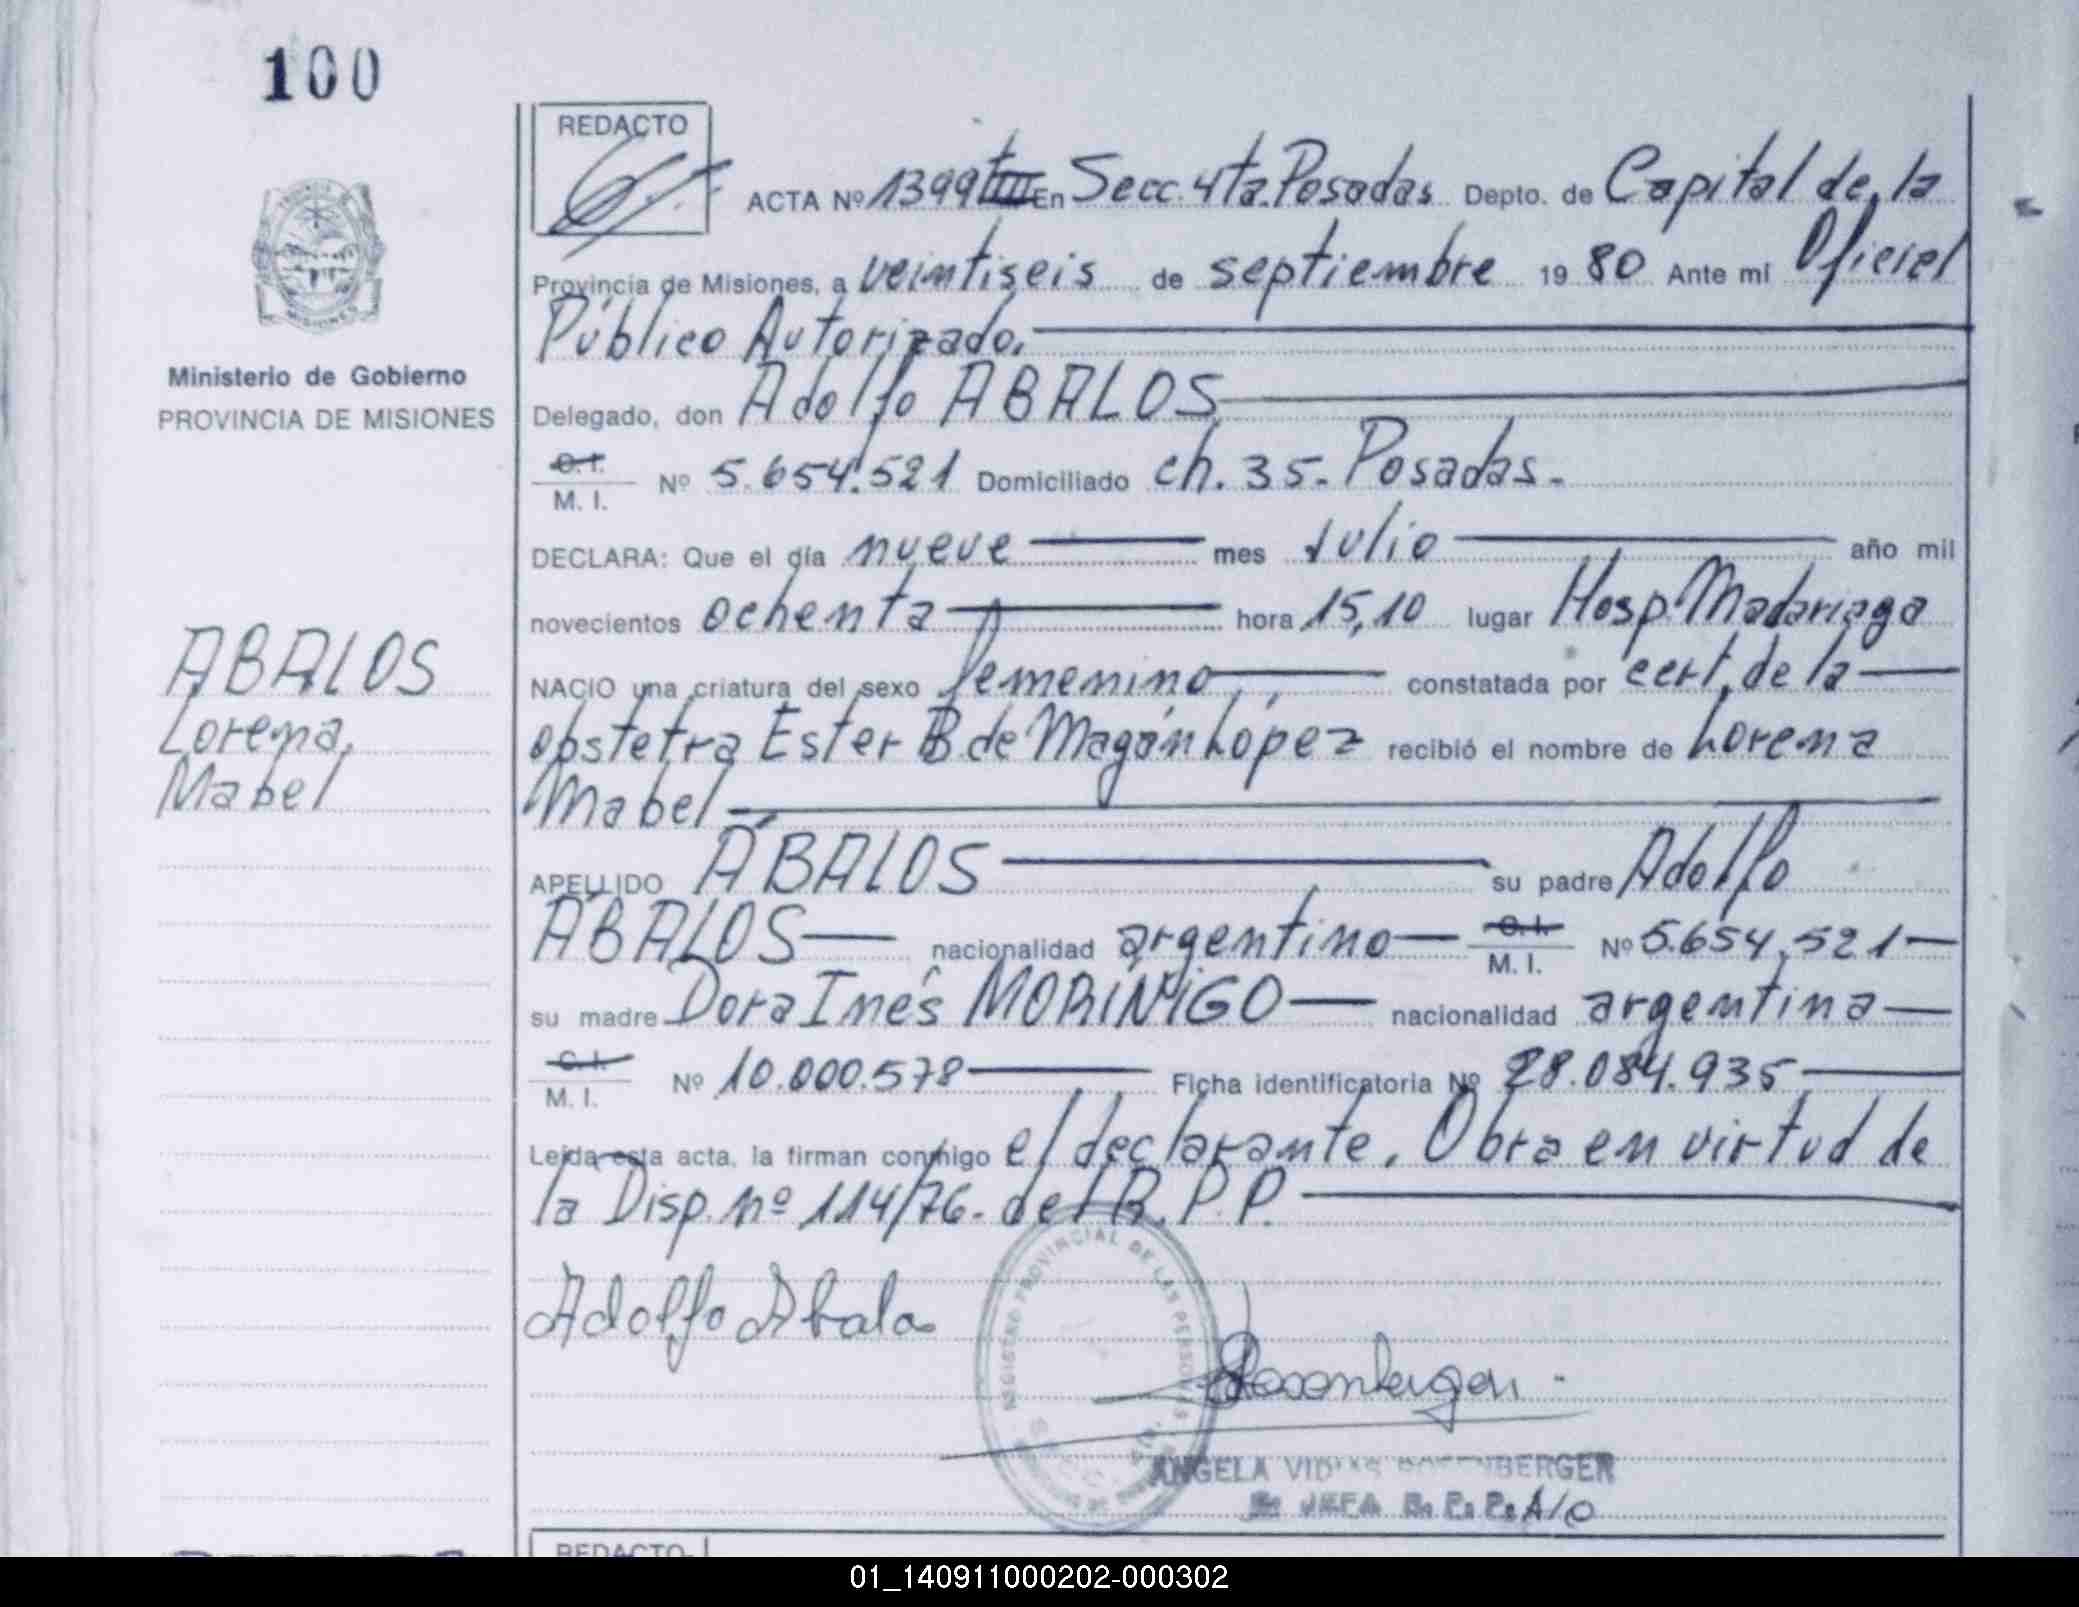 100
REDACTO
ACTA Nº 1399 tIII En Secc. 4ta. Posadas Depto. de Capital de la
Provincia de Misiones, a veintiseis de septiembre 19 80 Ante mi Oficiel
Público Autorizado.
Ministerio de Gobierno
PROVINCIA DE MISIONES
Delegado, don Adolfo ABALOS
C.I.
M. I. Nº 5.654.521 Domiciliado ch. 35. Posadas.
DECLARA: Que el día nueve mes Julio año mil
novecientos ochenta hora 15,10 lugar Hosp. Madariaga
ABALOS
Lorena
Mabel
NACIO una criatura del sexo femenino constatada por cert. de la
obstetra Ester B. de Magán López recibió el nombre de Lorena
Mabel
APELLIDO ÁBALOS su padre Adolfo
ÁBALOS nacionalidad argentino C.I.
M. I. Nº 5.654.521
su madre Dora Inés MORIÑIGO nacionalidad argentina
C.I.
M. I. Nº 10.000.578 Ficha identificatoria Nº 28.084.935
Leída esta acta, la firman conmigo el declarante. Obra en virtud de
la Disp. nº 114/76. del R.P.P.
Adolfo Abalo
REGISTRO PROVINCIAL DE LAS PERSONAS
Rosenberger
ANGELA ROSENBERGER
JEFA R. P. P. A/C
REDACTO
01_140911000202-000302